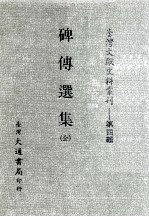 臺灣文獻史料叢刊　第四輯
碑傳選集
(全)
臺灣大通書局印行